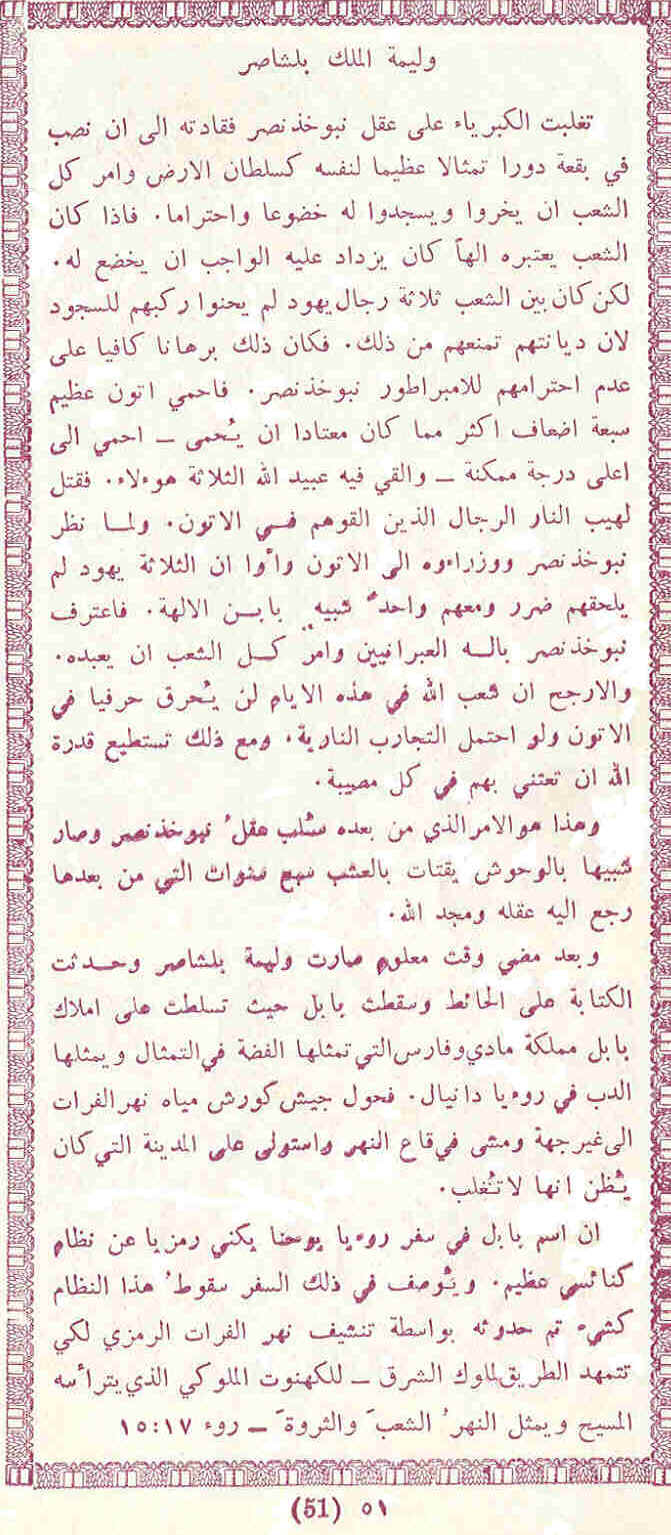 وليمة الملك بلشاصر
تغلبت الكبرياء على عقل نبوخذنصر فقادته الى ان نصب
في بقعة دورا تمثالا عظيما لنفسه كسلطان الارض وامر كل
الشعب ان يخروا ويسجدوا له خضوعا واحتراما. فاذا كان
الشعب يعتبره الهاً كان يزداد عليه الواجب ان يخضع له.
لكن كان بين الشعب ثلاثة رجال يهود لم يحنوا ركبهم للسجود
لان ديانتهم تمنعهم من ذلك. فكان ذلك برهانا كافيا على
عدم احترامهم للامبراطور نبوخذنصر. فاحمي اتون عظيم
سبعة اضعاف اكثر مما كان معتادا ان يُحمى – احمي الى
اعلى درجة ممكنة – والقي فيه عبيد الله الثلاثة هوءلاء. فقتل
لهيب النار الرجال الذين القوهم في الاتون. ولما نظر
نبوخذنصر ووزراءوه الى الاتون رأوا ان الثلاثة يهود لم
يلحقهم ضرر ومعهم واحدٌ شبيه بابن الالهة. فاعترف
نبوخذنصر باله العبرانيين وامر كل الشعب ان يعبده.
والارجح ان شعب الله في هذه الايام لن يُحرق حرفيا في
الاتون ولو احتمل التجارب النارية. ومع ذلك تستطيع قدرة
الله ان تعتني بهم في كل مصيبة.
وهذا هو الامر الذي من بعده سُلب عقلُ نبوخذنصر وصار
شبيها بالوحوش يقتات بالعشب سبع سنوات التي من بعدها
رجع اليه عقله ومجد الله.
وبعد مضي وقت معلوم صارت وليمة بلشاصر وحدثت
الكتابة على الحائط وسقطت بابل حيث تسلطت على املاك
بابل مملكة مادي وفارس التي تمثلها الفضة في التمثال ويمثلها
الدب في روءيا دانيال. فحول جيش كورش مياه نهر الفرات
الى غير جهة ومشى في قاع النهر واستولى على المدينة التي كان
يُظن انها لا تُغلب.
ان اسم بابل في سفر روءيا يوحنا يكني رمزيا عن نظام
كنائسي عظيم. ويُوصف في ذلك السفر سقوطُ هذا النظام
كشيء تم حدوثه بواسطة تنشيف نهر الفرات الرمزي لكي
تتمهد الطريق لملوك الشرق – للكهنوت الملوكي الذي يترأسه
المسيح ويمثل النهرُ الشعبَ والثروةَ – روء ١٥:١٧
٥١ (51)